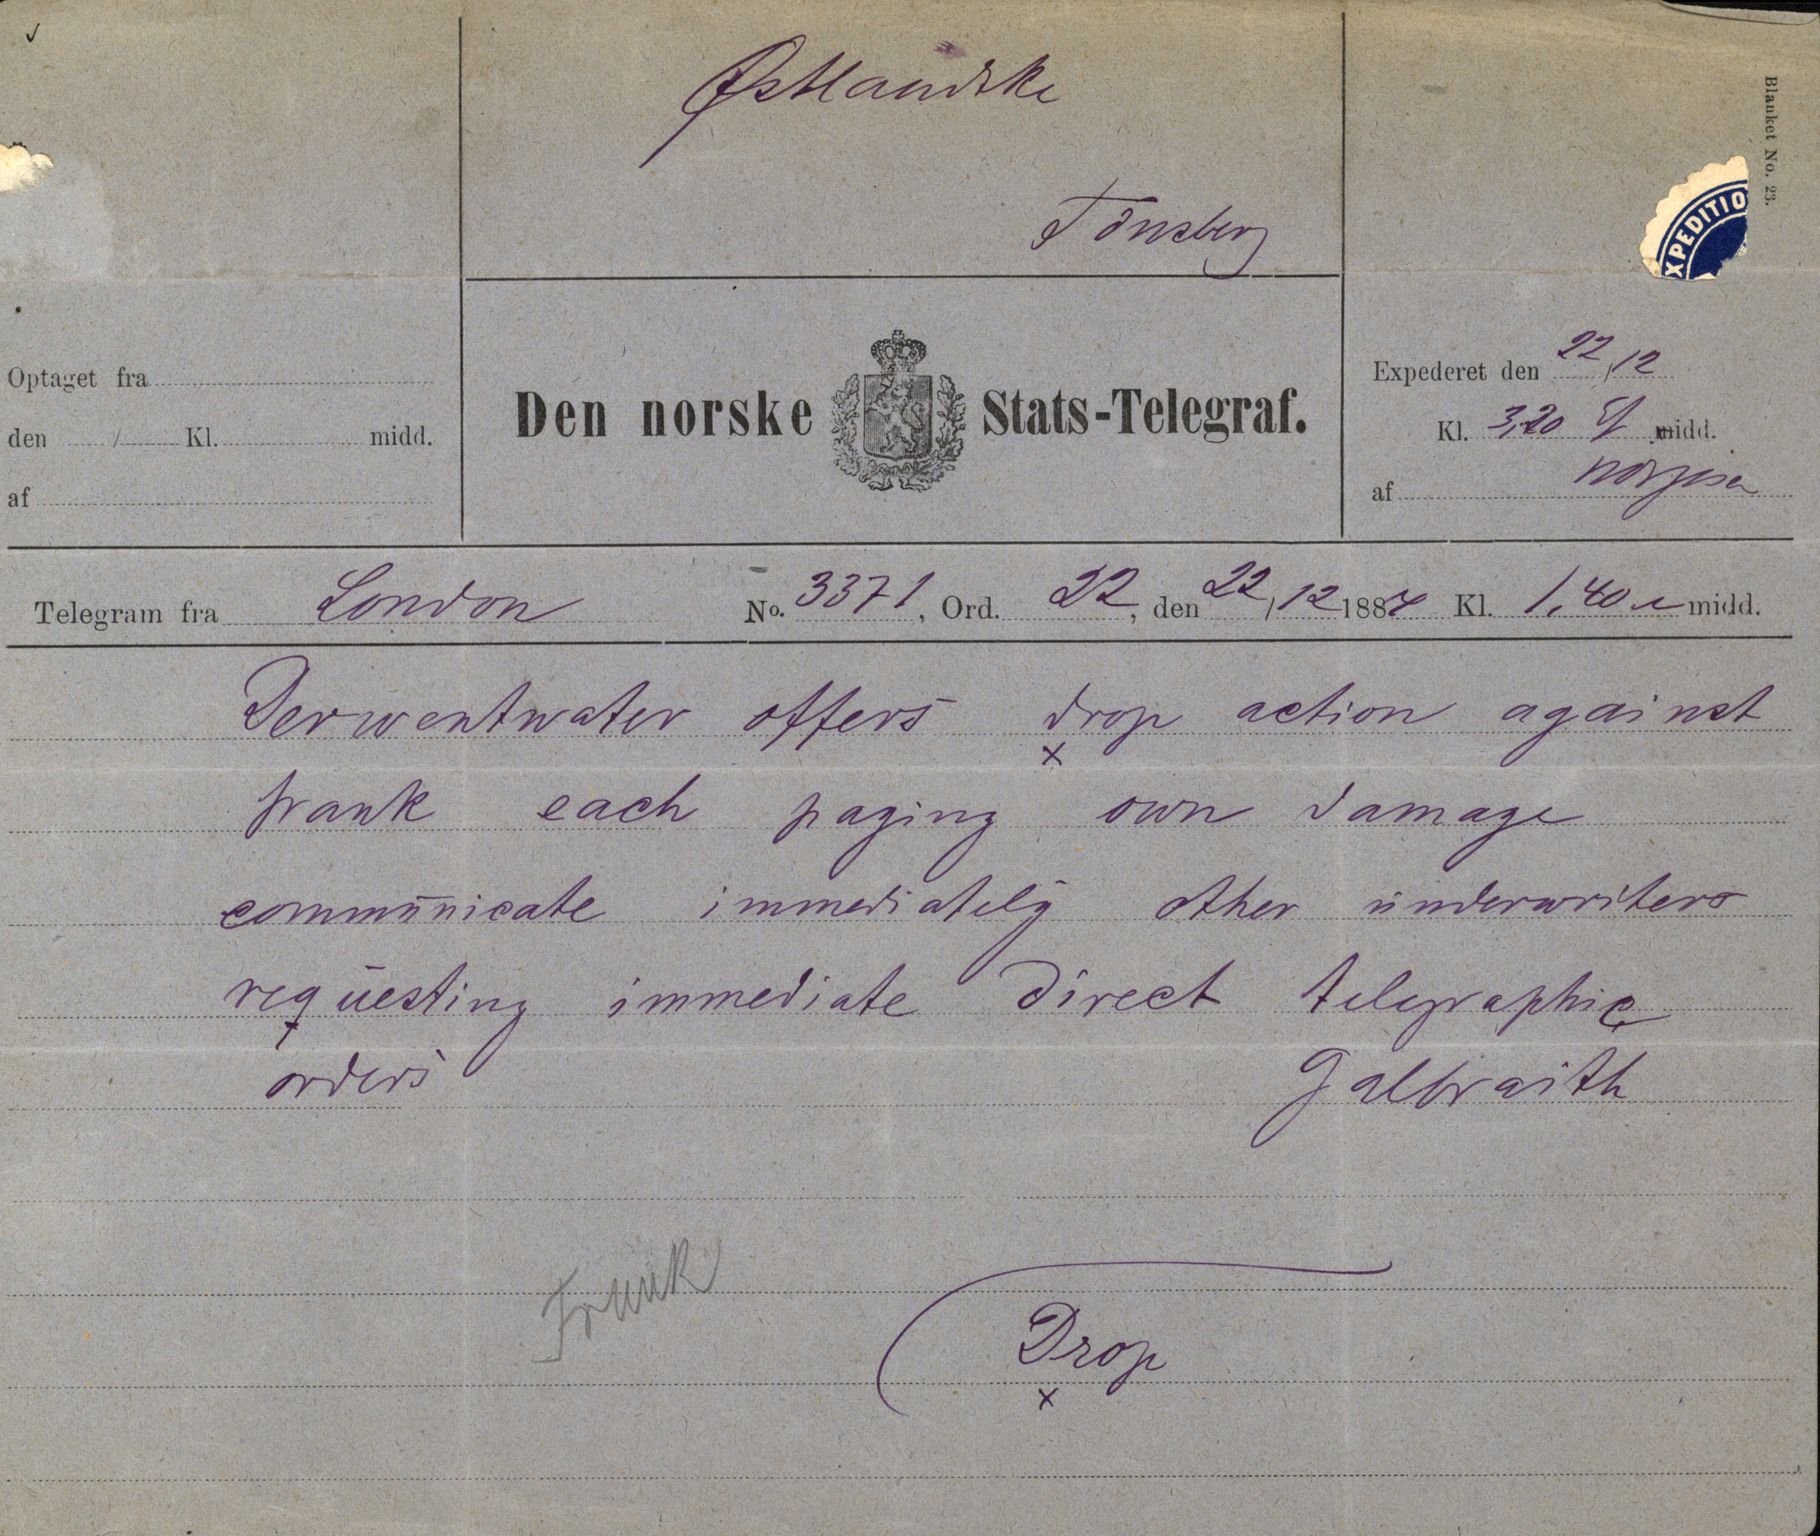 Østlandske
Tönsberg
Blanket No. 23.
XPEDITIO
Optaget fra
den / Kl. midd.
af
Den norske Stats-Telegraf.
Expederet den 22/12
Kl. 3,20 Ef midd.
af
Telegram fra London No. 3371, Ord. 22, den 22/12 1884 Kl. 1,40 midd.
Derwentwater offers drop action against
x
frank each paying own damage
communicate immediately other underwriters
requesting immediate direct telegraphic
orders Galbraith
Frank
Drop
x